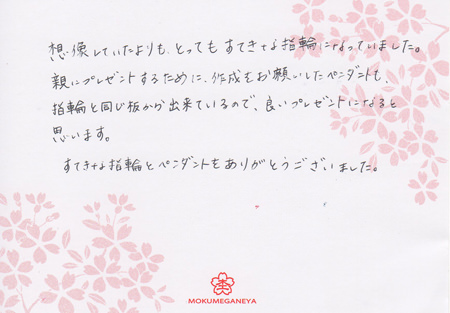 想像していたよりも、とっても すてきな指輪になっていました。
親にプレゼントするために、作成をお願いしたペンダントも、
指輪と同じ板から出来ているので、良いプレゼントになると
思います。
すてきな指輪とペンダントをありがとうございました。
MOKUMEGANEYA